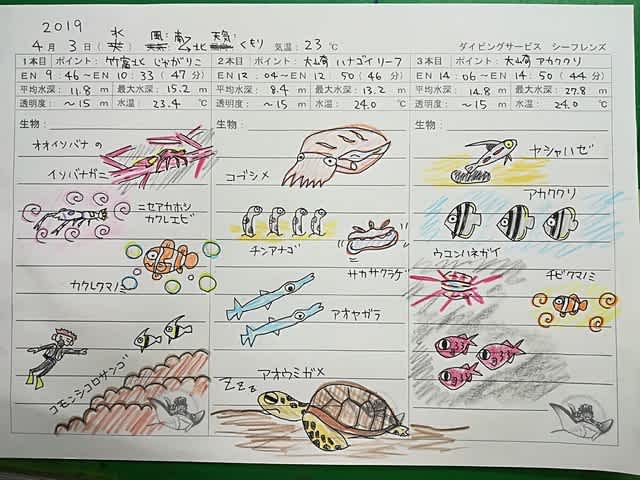 2019
4月 3日(水) 風: 南→北 天気: くもり 気温: 23℃ ダイビングサービス シーフレンズ
1本目 ポイント: 竹富北 じゃがりこ
EN 9:46〜EN 10:33 (47分)
平均水深: 11.8 m 最大水深: 15.2 m
透明度: 〜15 m 水温: 23.4 ℃
生物:
オオイソバナの
イソバナガニ
ニセアカホシ
カクレエビ
カクレクマノミ
コモンシコロサンゴ
2本目 ポイント: 大崎 ハナゴイリーフ
EN 12:04〜EN 12:50 (46分)
平均水深: 8.4 m 最大水深: 13.2 m
透明度: 〜15 m 水温: 24.0 ℃
生物:
コブシメ
チンアナゴ
サカサクラゲ
アオヤガラ
アオウミガメ
zzz
3本目 ポイント: 大崎 アカククリ
EN 14:06〜EN 14:50 (44分)
平均水深: 14.8 m 最大水深: 27.8 m
透明度: 〜15 m 水温: 24.0 ℃
生物:
ヤシャハゼ
アカククリ
ウコンハネガイ
チビクマノミ